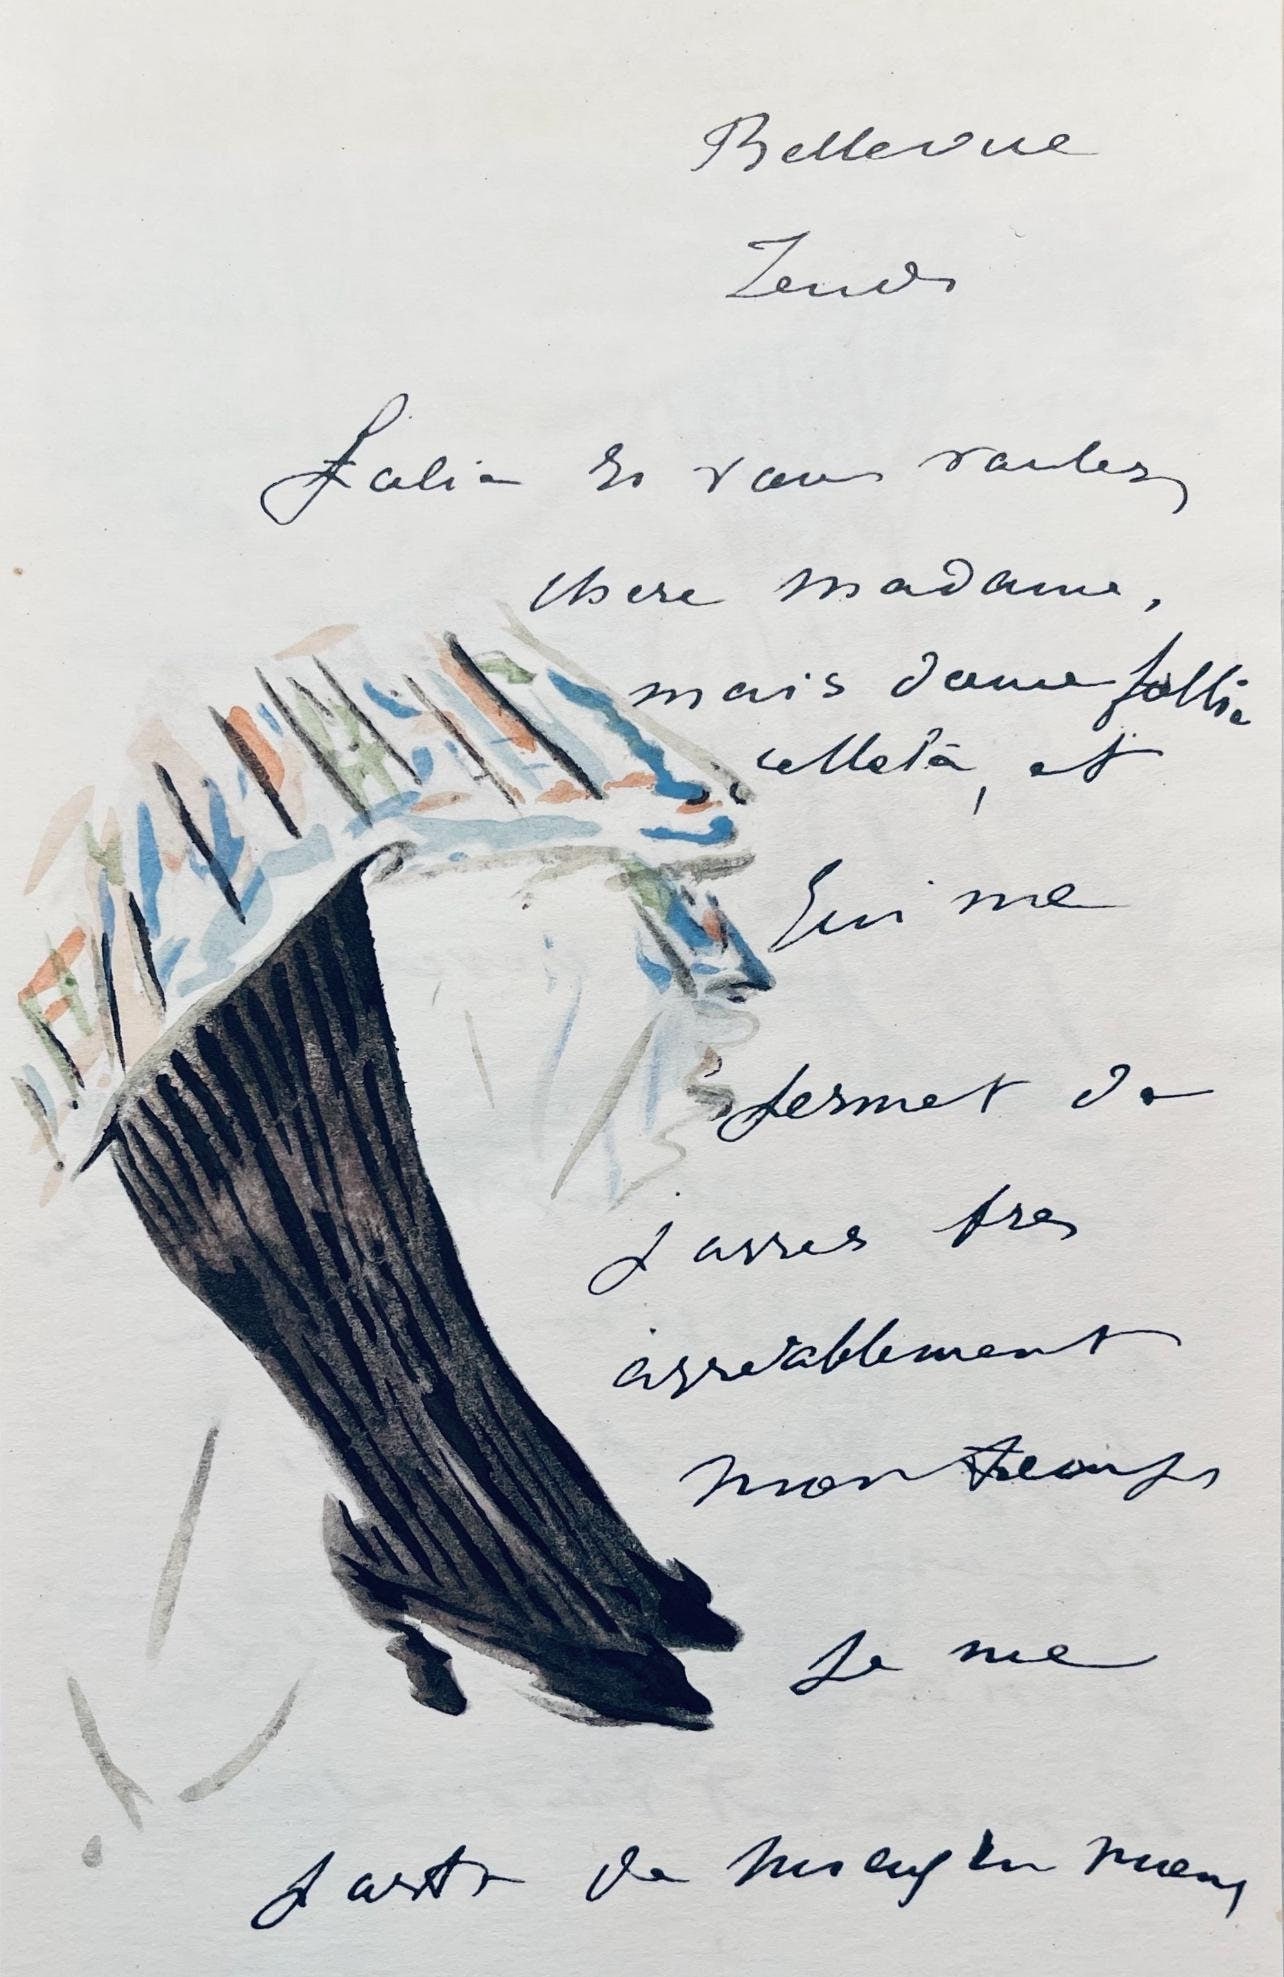 Bellevue
Jeudi
Folie si vous voulez,
chere madame,
mais douce follie
cellela, et
qui me
permet de
passer tres
agréablement
mon temps
je me
porte de mieux en mieux